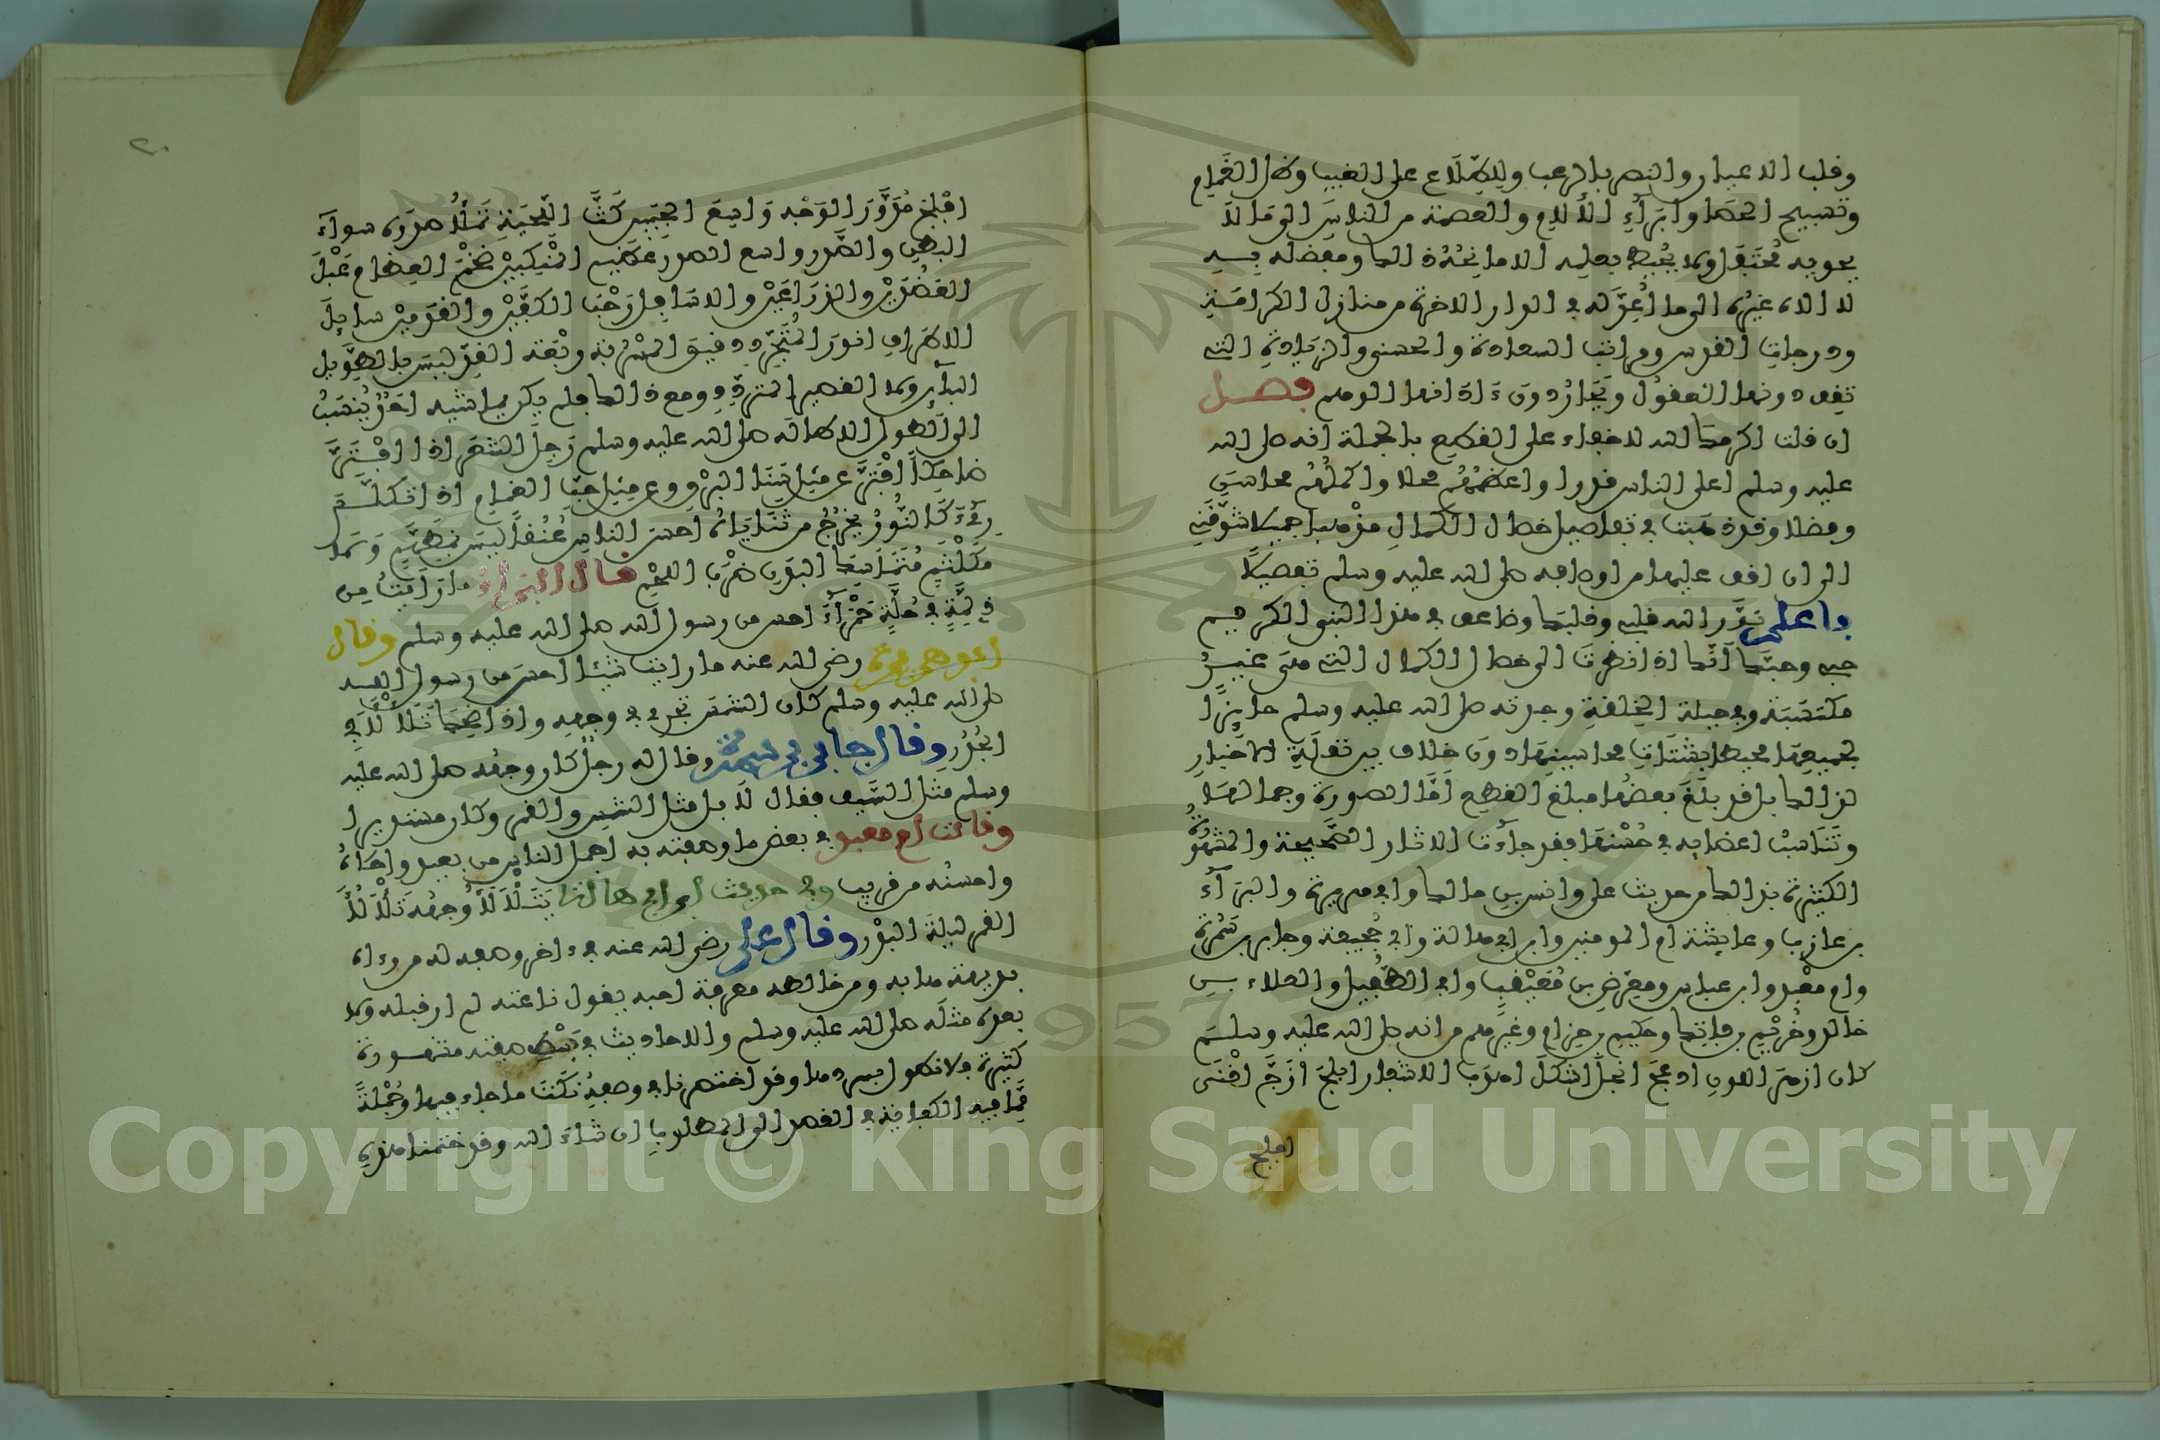 وقلب الاعيان والنصر بالرعب والاطلاع على الغيب وظل الغمام
وتسبيح الحصا وابراء الالام والعصمة من الناس الى ما لا
يحويه محتفل ولا يحيط بعلمه الا مانحه ذلك ومفضله به
لا اله غيره الى ما اعد له في الدار الاخرة من منازل الكرامة
ودرجات القدس ومراتب السعادة والحسنى والزيادة التي
تقف دونها العقول ويحار دون ادانيها الوهم فصل
ان قلت اكرمك الله لا خفاء على القطع بالجملة انه صلى الله
عليه وسلم اعلى الناس قدرا واعظمهم محلا واكملهم محاسن
وفضلا وقد ذهبت في تفاصيل خصال الكمال مذهبا جميلا شوقني
الى ان اقف عليها من اوصافه صلى الله عليه وسلم تفصيلا
فاعلم نور الله قلبي وقلبك وضاعف في هذا النبي الكريم
حبي وحبك انك اذا نظرت الى خصال الكمال التي هي غير
مكتسبة وفي جبلة الخلقة وجدته صلى الله عليه وسلم حايزا
لجميعها محيطا بشتات محاسنها دون خلاف بين نقلة الاخبار
لذلك بل قد بلغ بعضها مبلغ القطع اما الصورة وجمالها
وتناسب اعضايه في حسنها فقد جاءت الاثار الصحيحة والمشهورة
الكثيرة بذلك من حديث علي وانس بن مالك وابي هريرة والبراء
بن عازب وعايشة ام المومنين وابن ابي هالة وابي جحيفة وجابر بن سمرة
وام معبد وابن عباس ومعرض بن معيقيب وابي الطفيل والعداء بن
خالد وخريم بن فاتك وحكيم بن حزام وغيرهم من انه صلى الله عليه وسلم
كان ازهر اللون ادعج انجل اشكل اهدب الاشفار ابلج ازج اقنى
افلج
افلج مدور الوجه واسع الجبين كث اللحية تملأ صدره سواء
البطن والصدر واسع الصدر عظيم المنكبين ضخم العظام عبل
العضدين والذراعين والاسافل رحب الكفين والقدمين سايل
الاطراف انور المتجرد دقيق المسربة ربعة القد ليس بالطويل
الباين ولا القصير المتردد ومع ذلك فلم يكن يماشيه احد ينسب
الى الطول الا طاله صلى الله عليه وسلم رجل الشعر اذا افتر
ضاحكا افتر عن مثل سنا البرق وعن مثل حب الغمام اذا تكلم
رءى كالنور يخرج من ثناياه احسن الناس عنقا ليس بمطهم ولا
مكلثم متماسك البدن ضرب اللحم قال البراء ما رايت من
ذي لمة في حلة حمراء احسن من رسول الله صلى الله عليه وسلم وقال
ابو هريرة رضي الله عنه ما رايت شيئا احسن من رسول الله
صلى الله عليه وسلم كان الشمس تجري في وجهه واذا ضحك يتلألأ في
الجدر وقال جابر بن سمرة وقال له رجل كان وجهه صلى الله عليه
وسلم مثل السيف فقال لا بل مثل الشمس والقمر وكان مستديرا
وقالت ام معبد في بعض ما وصفته به اجمل الناس من بعيد واحلاه
واحسنه من قريب وفي حديث ابن ابي هالة يتلألأ وجهه تلألأ
القمر ليلة البدر وقال علي رضي الله عنه في ءاخر وصفه له من رءاه
بديهة هابه ومن خالطه معرفة احبه يقول ناعته لم ار قبله ولا
بعده مثله صلى الله عليه وسلم والاحاديث في بسط صفته مشهورة
كثيرة فلا نطول بسردها وقد اختصرنا في وصفه نكت ما جاء فيها وجملة
مما فيه الكفاية في القصد الى المطلوب ان شاء الله وقد ختمنا هذه
٢٠
1957
Copyright © King Saud University